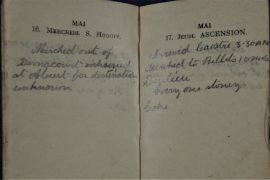 MAI
16. MERCREDI. S. HONORÉ.
Marched out of
Dernacourt entrained
at Albert for destination
unknown
MAI
17. JEUDI. ASCENSION.
Arrived 3-30AM
Marched to Billets 10
Everyone stoney